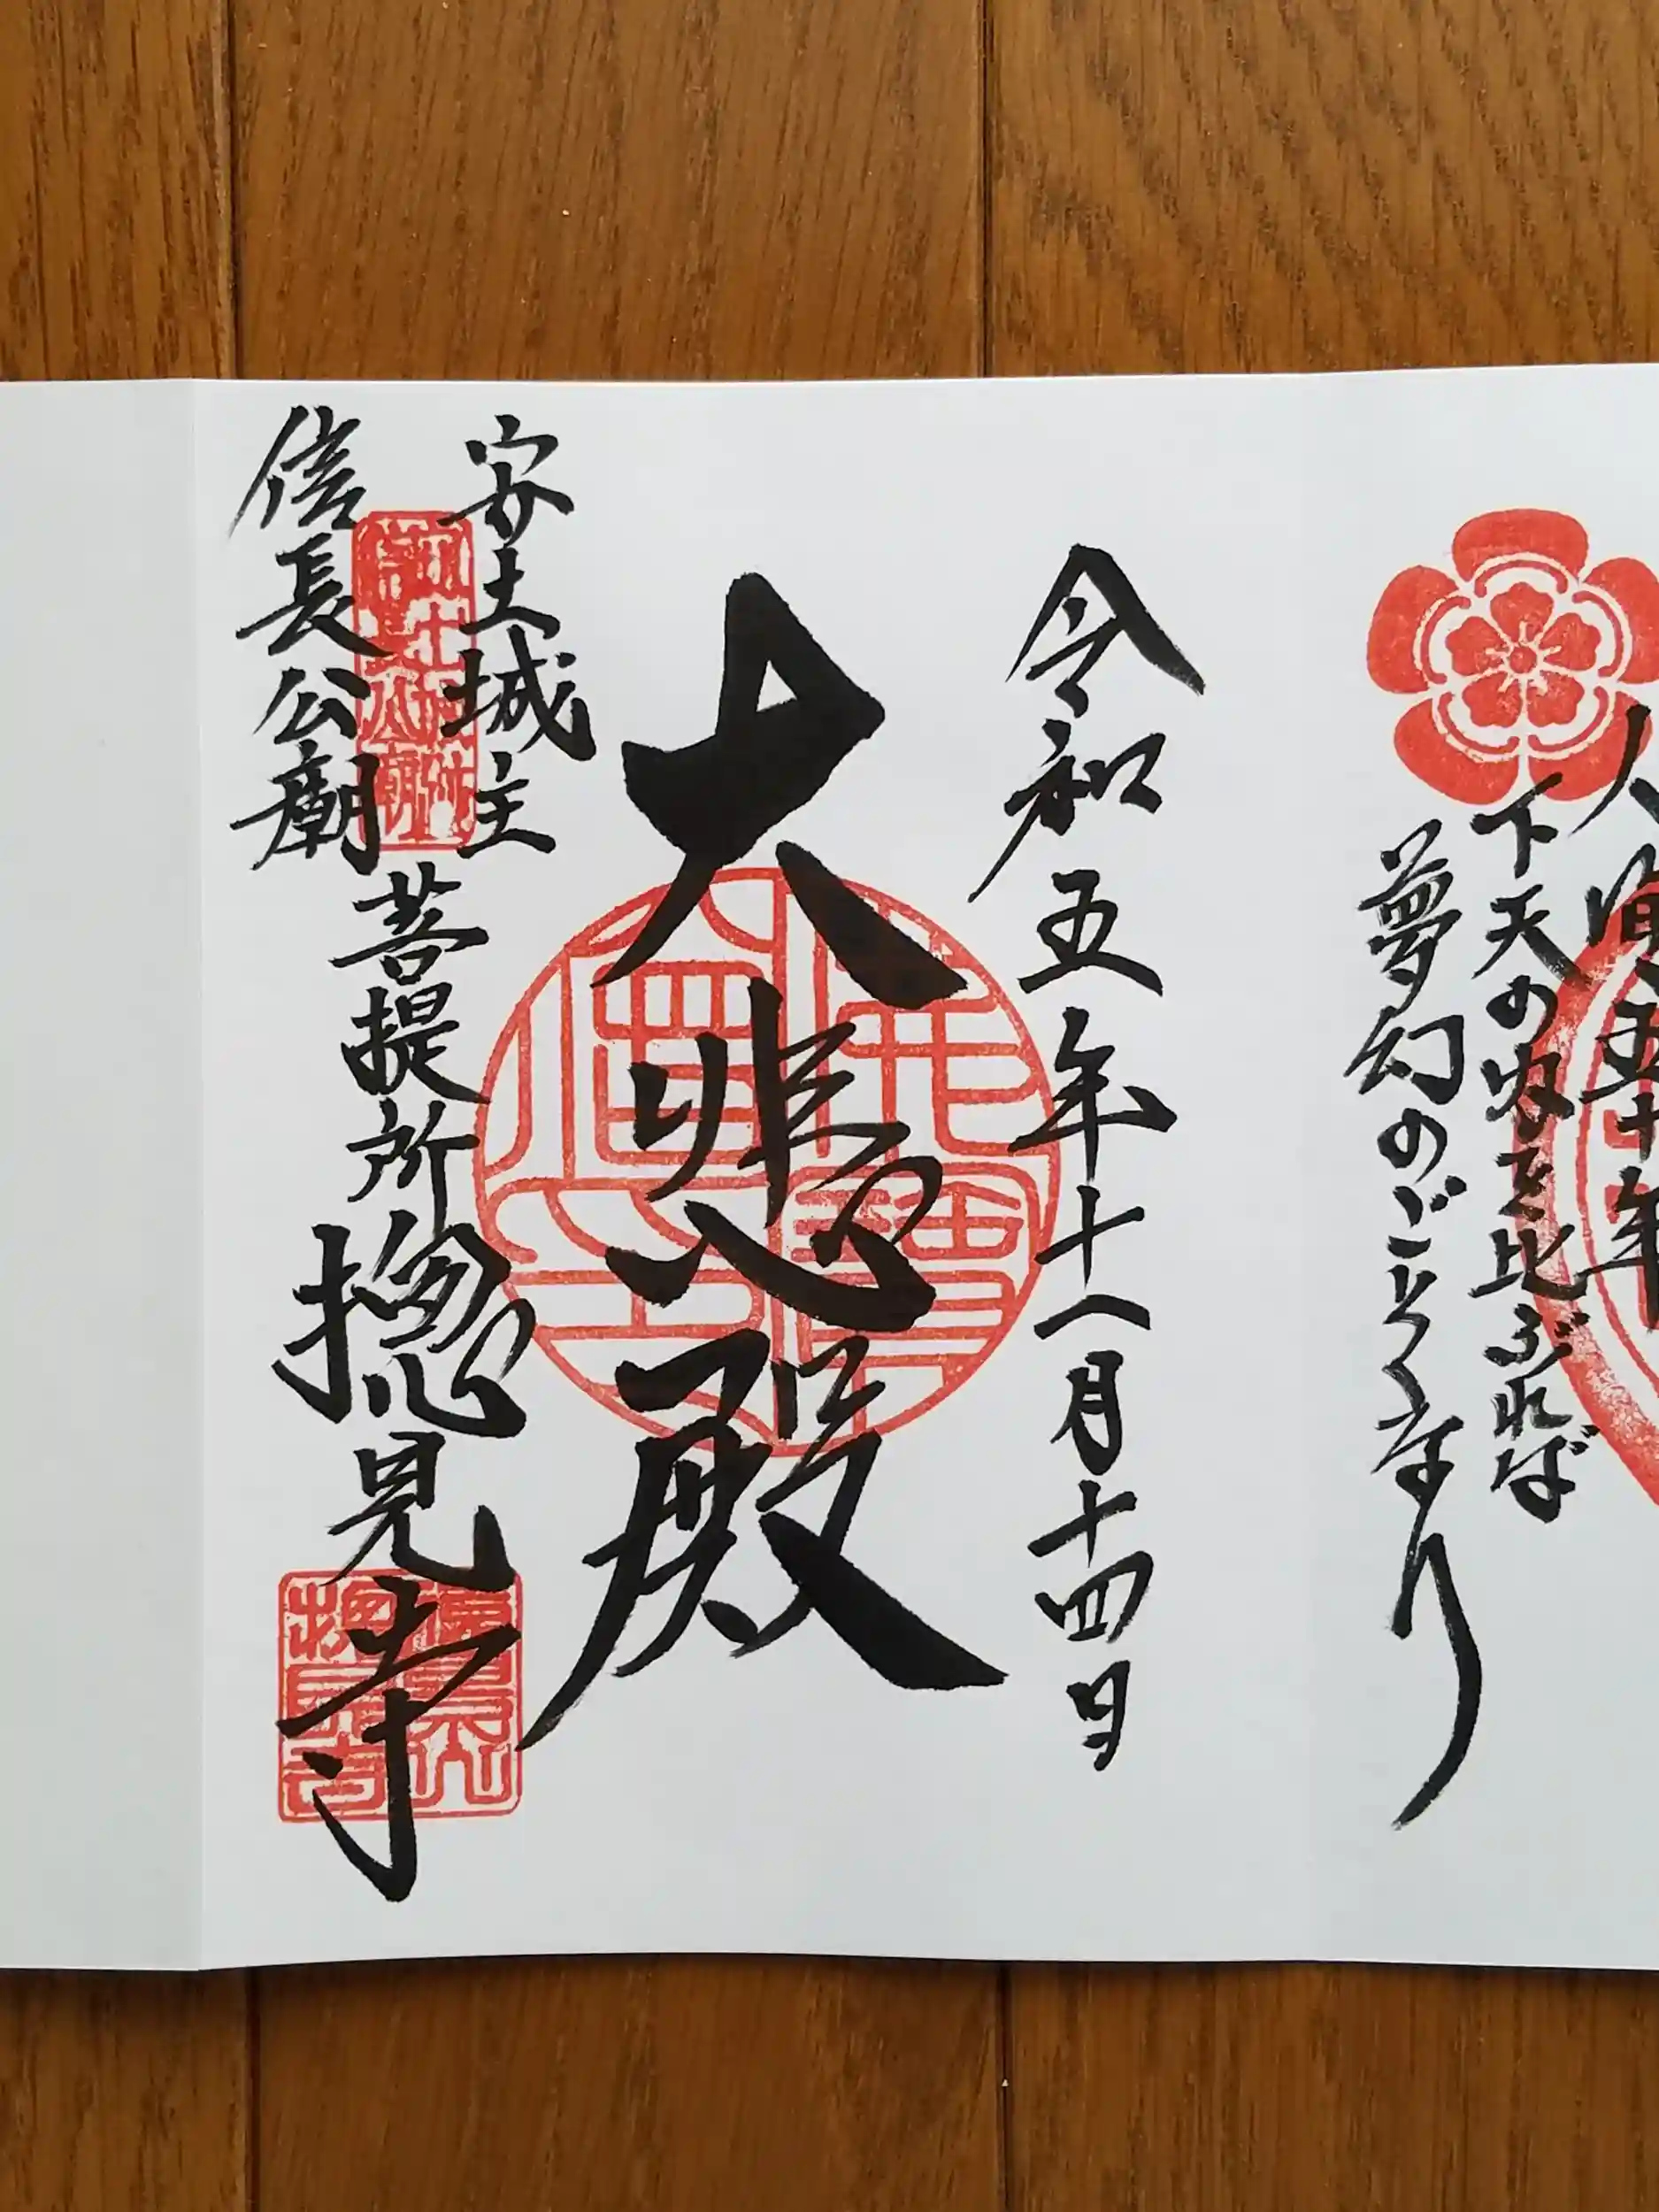 人間五十年
下天の内を比ぶれば
夢幻のごとくなり
令和五年十一月十四日
大悲殿
安土城主
信長公廟
菩提所摠見寺